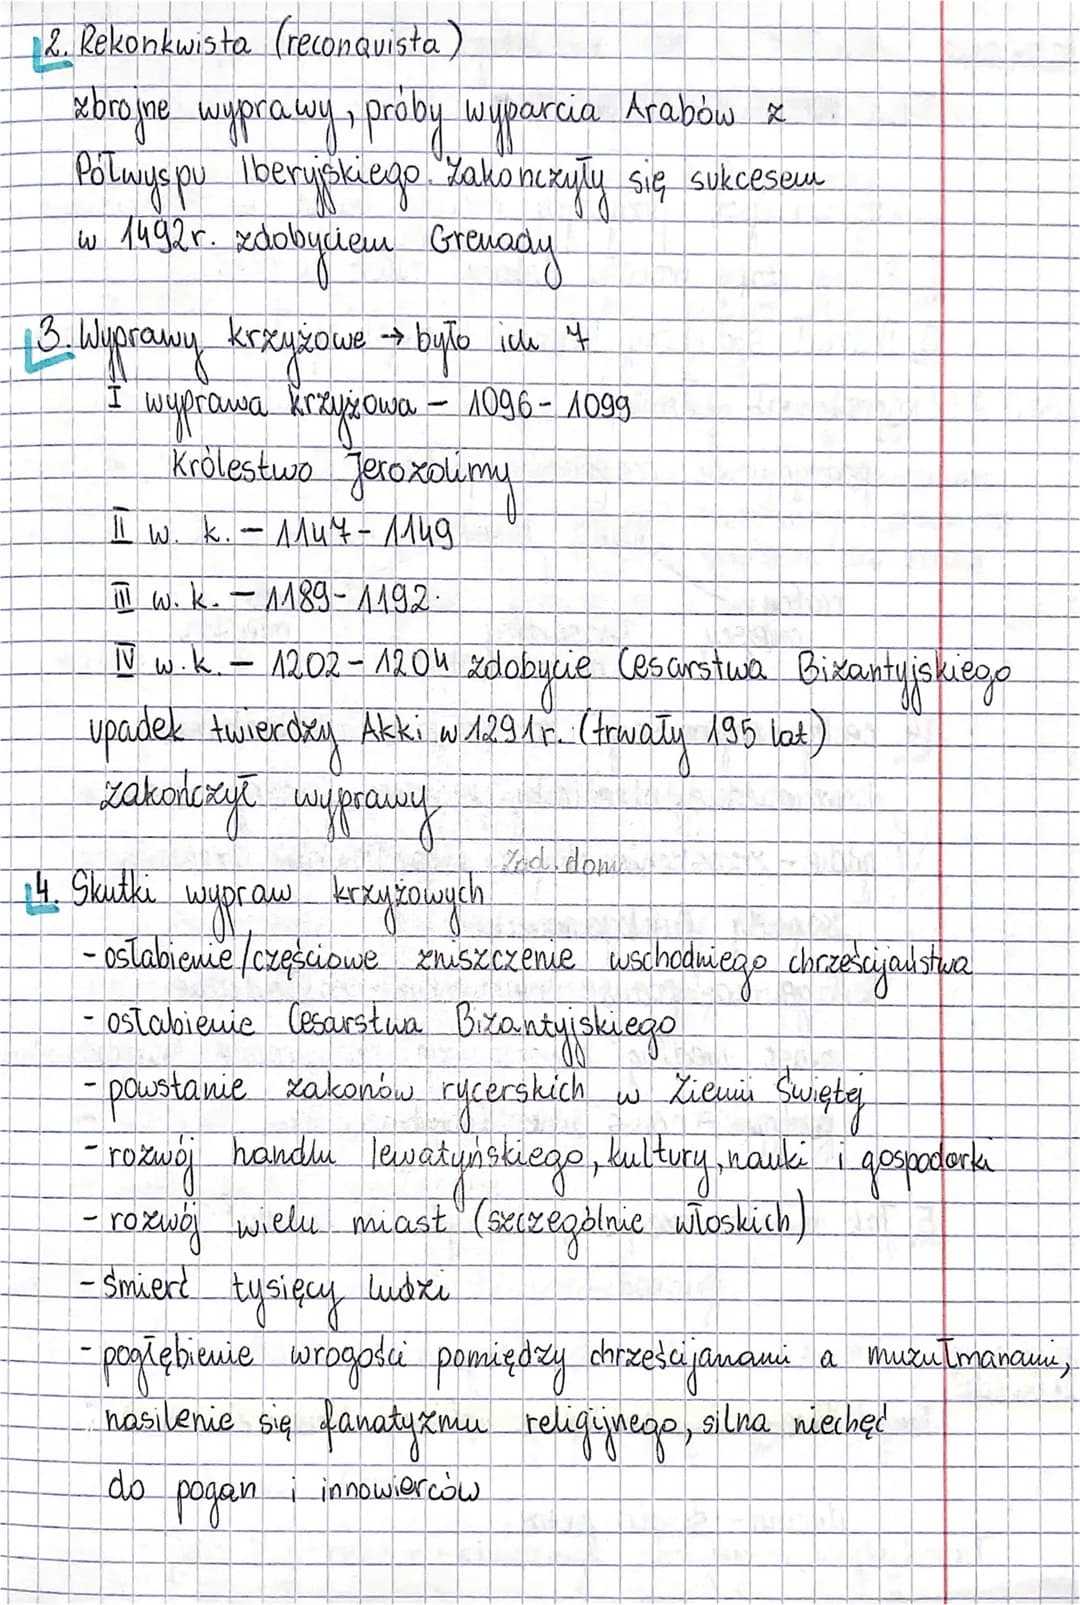 2. Rekonkwista (reconquista)
zbrojne wyprawy, próby wyparcia Arabów z
Półwyspu Iberyjskiego. Zakończyły się sukcesem
w 1492r. zdobyciem Grenady
3. Wyprawy krzyżowe → było ich 7
I wyprawa krzyżowa - 1096 - 1099
Królestwo Jerozolimy
II w. k. - 1147 - 1149
III w. k. - 1189 - 1192.
IV w. k. - 1202 - 1204 zdobycie Cesarstwa Bizantyjskiego
upadek twierdzy Akki w 1291r. (trwały 195 lat)
zakończył wyprawy
Zad. dom
4. Skutki wypraw krzyżowych
- osłabienie/częściowe zniszczenie wschodniego chrześcijaństwa
- osłabienie Cesarstwa Bizantyjskiego
- powstanie zakonów rycerskich w Ziemi Świętej
- rozwój handlu lewatyńskiego, kultury, nauki i gospodarki
- rozwój wielu miast (szczególnie włoskich)
- śmierć tysięcy ludzi
- pogłębienie wrogości pomiędzy chrześcijanami a muzułmanami,
nasilenie się fanatyzmu religijnego, silna niechęć
do pogan i innowierców